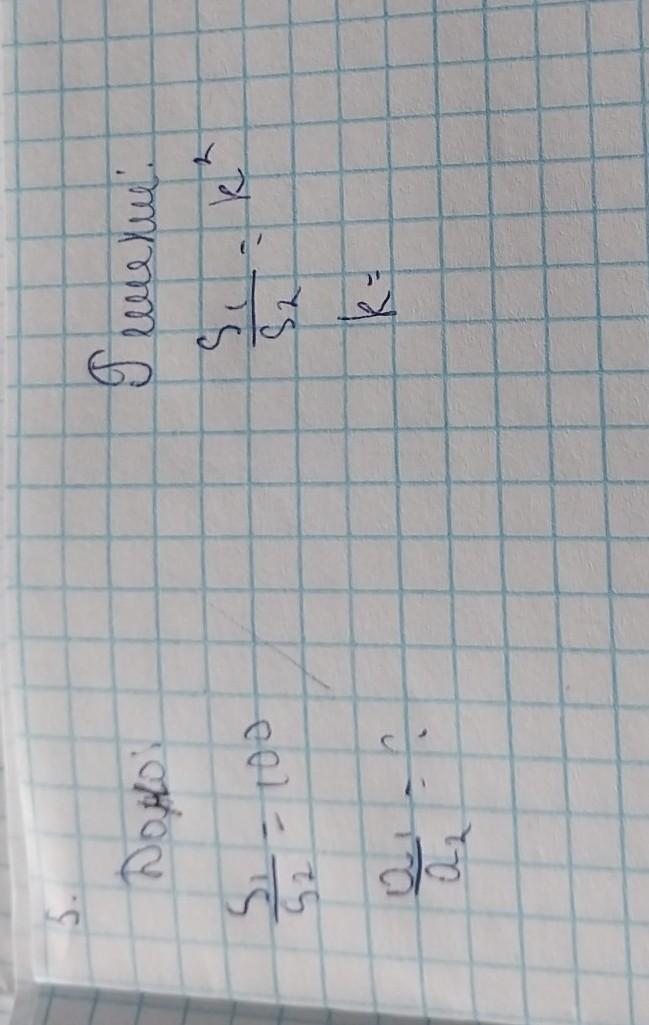 5.
Дано:
S₁/S₂ = 100
a₁/a₂ = ?
Решение:
S₁/S₂ = k²
k =